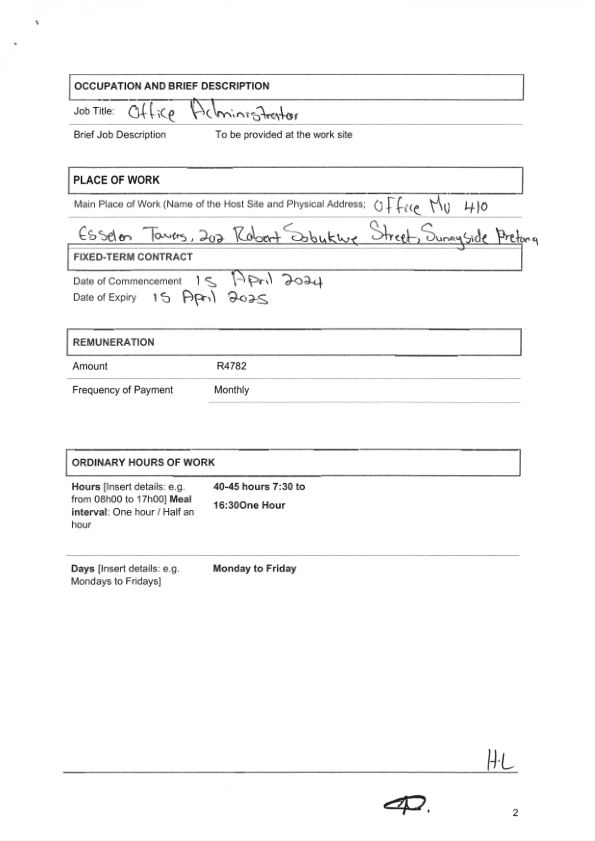 OCCUPATION AND BRIEF DESCRIPTION
Job Title: Office Administrator
Brief Job Description To be provided at the work site
PLACE OF WORK
Main Place of Work (Name of the Host Site and Physical Address; Office MU 410
Esselen Towers, 202 Robert Sobukwe Street, Sunnyside Pretoria
FIXED-TERM CONTRACT
Date of Commencement 15 April 2024
Date of Expiry 15 April 2025
REMUNERATION
Amount R4782
Frequency of Payment Monthly
ORDINARY HOURS OF WORK
Hours [Insert details: e.g. 40-45 hours 7:30 to
from 08h00 to 17h00] Meal 16:30One Hour
interval: One hour / Half an
hour
Days [Insert details: e.g. Monday to Friday
Mondays to Fridays]
H.L
2